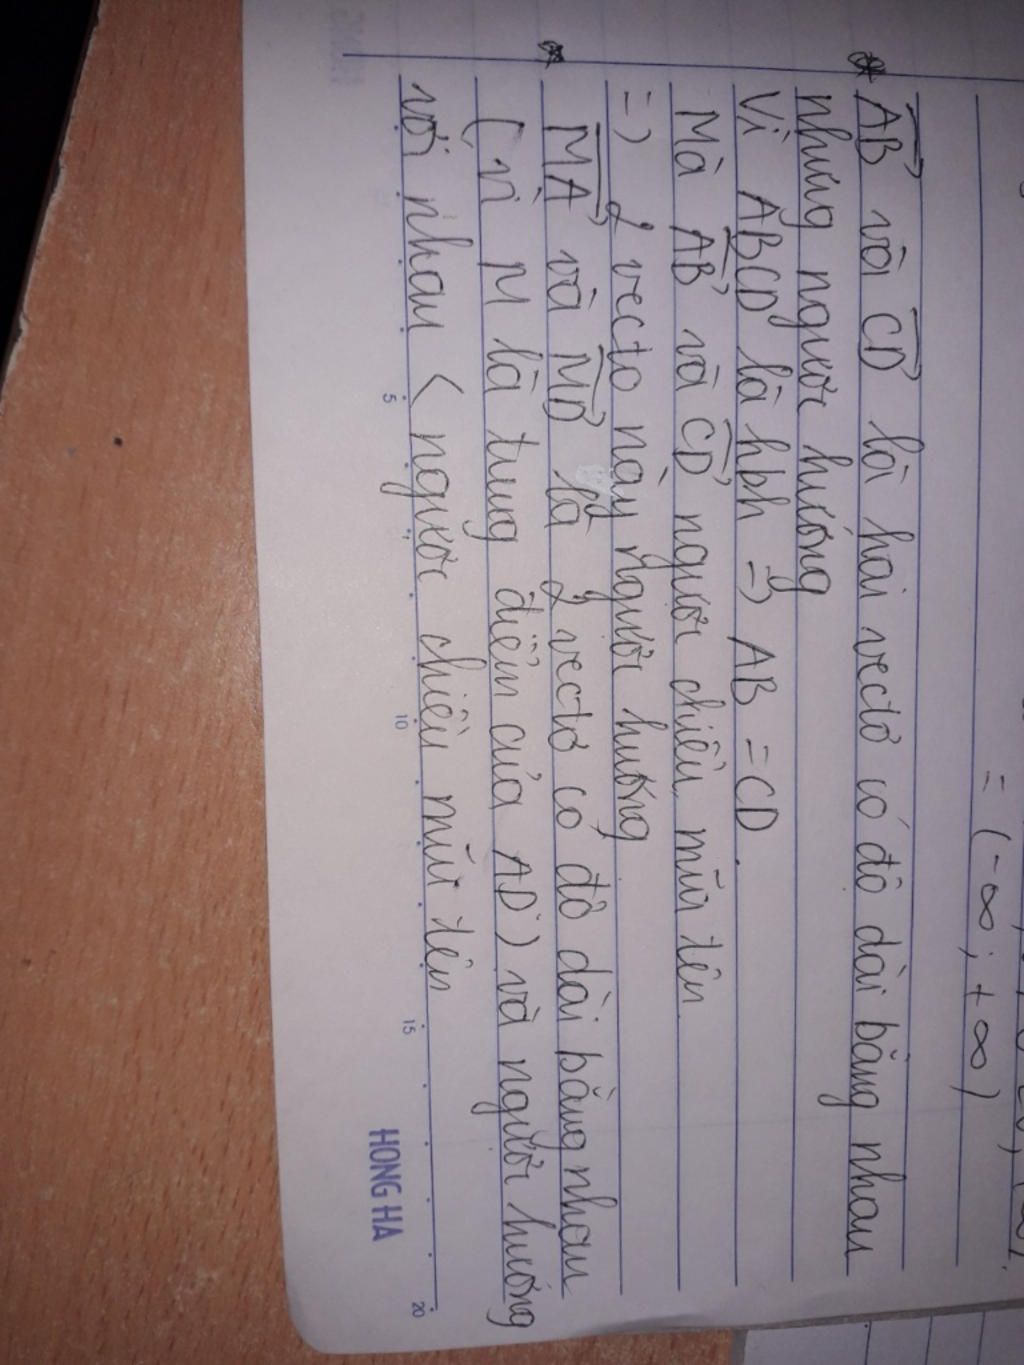 = (-∞; +∞)
* \overrightarrow{AB} và \overrightarrow{CD} là hai vectơ có độ dài bằng nhau
nhưng ngược hướng
Vì ABCD là hbh => AB = CD.
Mà \overrightarrow{AB} và \overrightarrow{CD} ngược chiều mũi tên
=> 2 vectơ này ngược hướng
* \overrightarrow{MA} và \overrightarrow{MD} là 2 vectơ có độ dài bằng nhau
( vì M là trung điểm của AD) và ngược hướng
với nhau < ngược chiều mũi tên
5 10 15 20
HONG HA